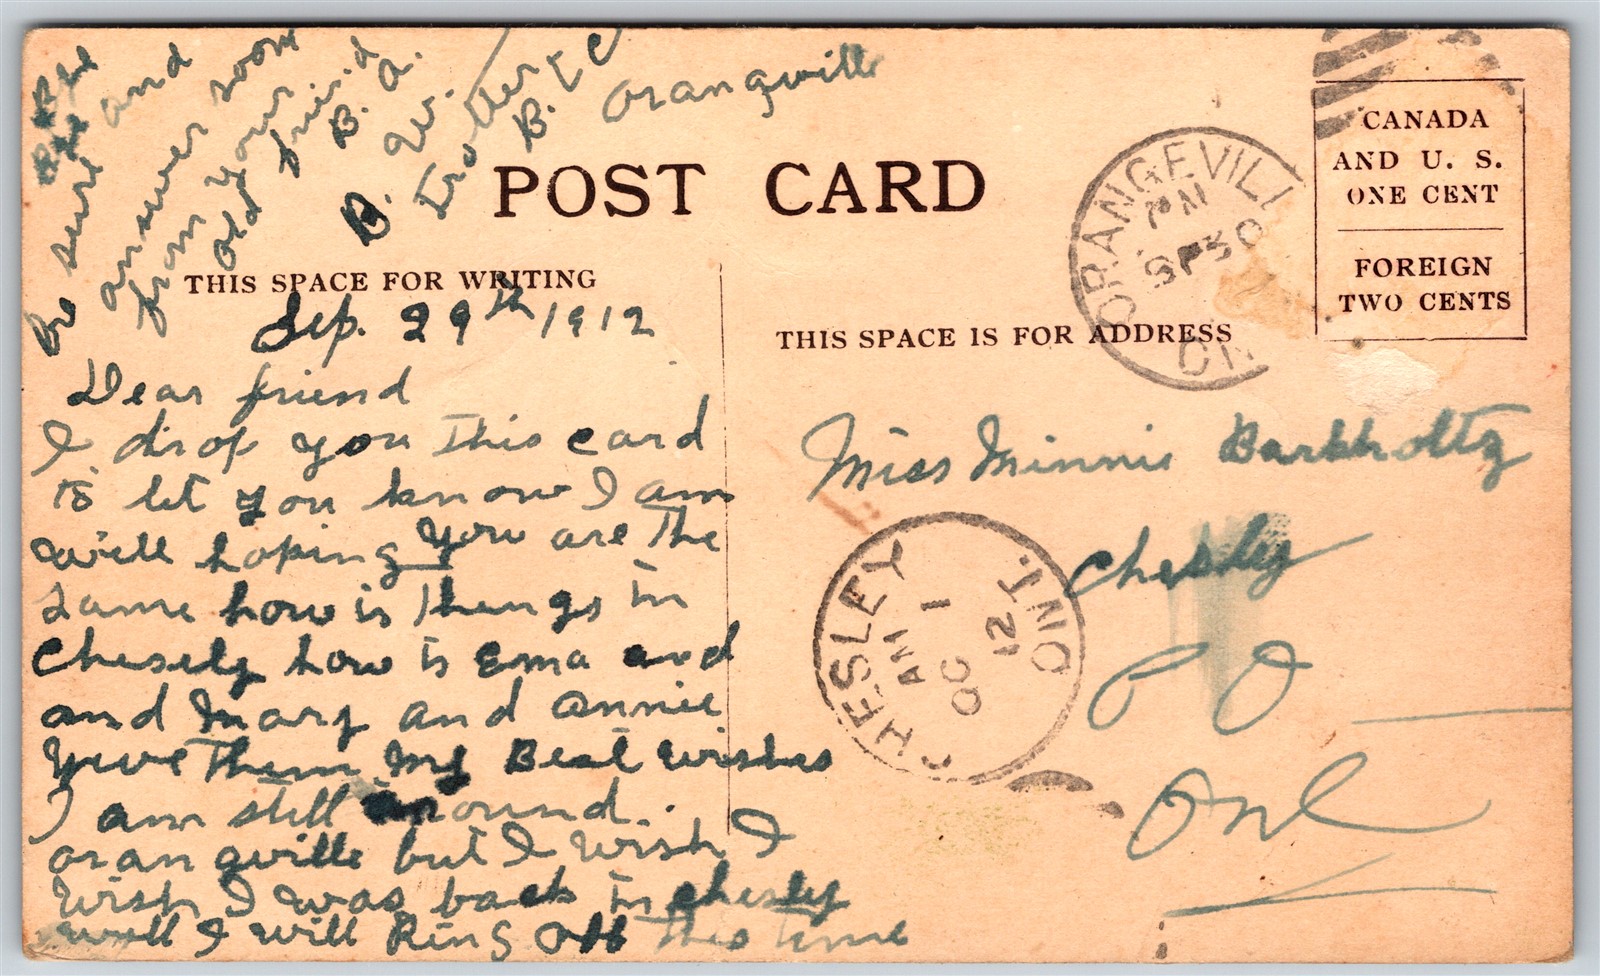 Be sure and
answer soon
from your
old friend
B. A.
B. W.
Trotter
B. T C
orangville
POST CARD
THIS SPACE FOR WRITING
Sep. 29th 1912
Dear friend
I drop you this card
to let you know I am
well hoping you are the
same how is things in
Chesely how is Ema and
and Mary and annie
give them my Best wishes
I am still around.
orangville but I wish I
wish I was back in chesly
well I will Ring off this time
ORANGEVILL
PM
SP 30
ON
CANADA
AND U. S.
ONE CENT
FOREIGN
TWO CENTS
THIS SPACE IS FOR ADDRESS
Miss Minnie Barkholtz
Chesley
P O
Ont
CHESLEY ONT.
AM
OC 1
12